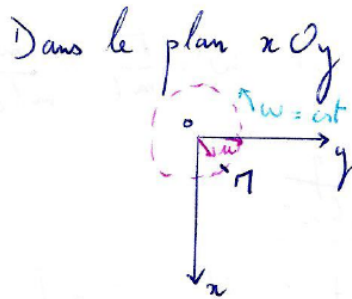 Dans le plan xOy
ω = cst
o
y
M
x